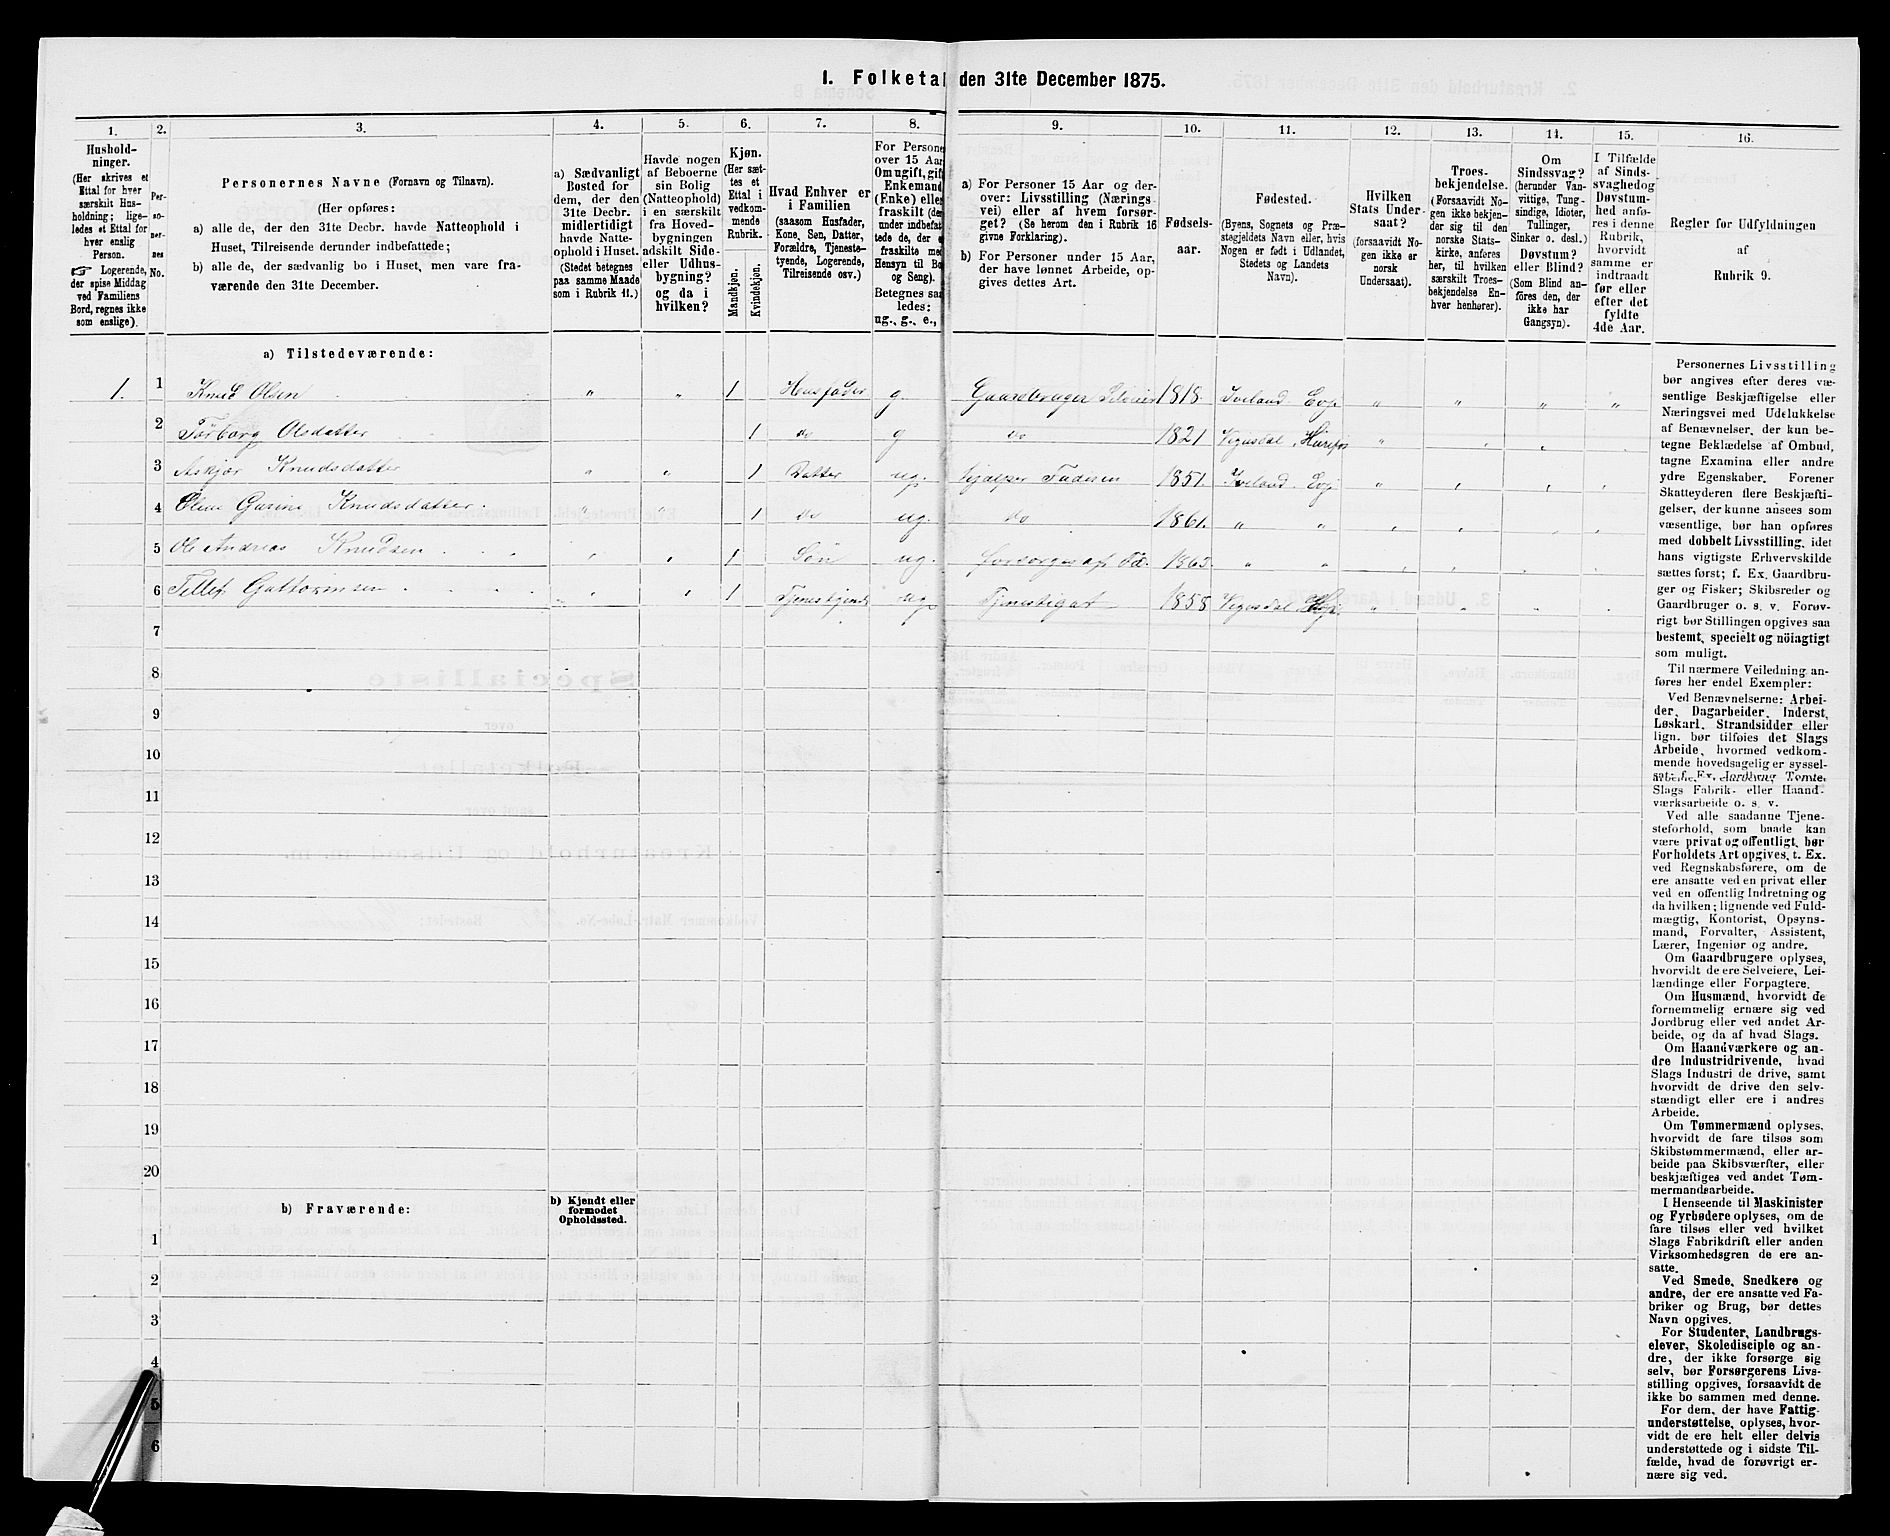 1. Folketal den 31te December 1875.
1.
Hushold-
ninger.
(Her skrives et
Ettal for hver
særskilt Hus-
holdning; lige-
ledes et Ettal for
hver enslig
Person.
☞ Logerende,
der spise Middag
ved Familiens
Bord, regnes ikke
som enslige).
2.
Per-
so-
ner-
nes
No.
3.
Personernes Navne (Fornavn og Tilnavn).
(Her opføres:
a) alle de, der den 31te Decbr. havde Natteophold i
Huset, Tilreisende derunder indbefattede;
b) alle de, der sædvanlig bo i Huset, men vare fra-
værende den 31te December.
4.
a) Sædvanligt
Bosted for
dem, der den
31te Decbr.
midlertidigt
havde Natte-
ophold i Huset.
(Stedet betegnes
paa samme Maade
som i Rubrik 11.)
5.
Havde nogen
af Beboerne
sin Bolig
(Natteophold)
i en særskilt
fra Hoved-
bygningen
adskilt Side-
eller Udhus-
bygning?
og da i
hvilken?
6.
Kjøn.
(Her sæt-
tes et
Ettal i
vedkom-
mende
Rubrik.
Mandkjøn.
Kvindekjøn.
7.
Hvad Enhver er
i Familien
(saasom Husfader,
Kone, Søn, Datter,
Forældre, Tjeneste-
tyende, Logerende,
Tilreisende osv.)
8.
For Persone
over 15 Aar
Om ugift, gif
Enkemand
(Enke) elle
fraskilt (de
under indbefat
tede de, der e
fraskilte me
Hensyn til Bo
og Seng).
Betegnes saa
ledes:
ug., g., e.,
9.
a) For Personer 15 Aar og der-
over: Livsstilling (Nærings-
vei) eller af hvem forsør-
get? (Se herom den i Rubrik 16
givne Forklaring).
b) For Personer under 15 Aar,
der have lønnet Arbeide, op-
gives dettes Art.
10.
Fødsels-
aar.
11.
Fødested.
(Byens, Sognets og Præ-
stegjeldets Navn eller, hvis
Nogen er født i Udlandet,
Stedets og Landets
Navn).
12.
Hvilken
Stats Under-
saat?
(forsaavidt No-
gen ikke er
norsk
Undersaat).
13.
Troes-
bekjendelse.
(Forsaavidt No-
gen ikke bekjen-
der sig til den
norske Stats-
kirke, anføres
her, til hvilken
særskilt Troes-
bekjendelse En-
hver henhører).
14.
Om
Sindssvag?
(herunder Van-
vittige, Tung-
sindige, Idioter,
Tullinger,
Sinker o. desl.)
Døvstum?
eller Blind?
(Som Blind an-
føres den, der
ikke har
Gangsyn).
15.
I Tilfælde
af Sinds-
svaghed og
Døvstum-
hed anfø-
res i denne
Rubrik,
hvorvidt
samme er
indtraadt
før eller
efter det
fyldte
4de Aar.
16.
Regler for Udfyldningen
af
Rubrik 9.
a) Tilstedeværende:
1. 1 Knud Olsen " " 1 Husfader g Gaardbruger Selveier 1818. Iveland Evje " " " "
2 Torborg Olsdatter 1 do g do 1821 Vegusdal, " , ,
3 Askjær Knudsdatter " " 1 Datter ug. Hjælper Faderen 1851. Iveland Evje " , , ,
4 Oline Gurine Knudsdatter. " " 1 do ug. do 1861. " " , , , ,
5 Ole Andreas Knudsen , " 1 Søn ug. forsørges af Fa. 1863. " " , , . ,
6 Tellef Guttormsen , , 1 ug. 1858 Vegusdal " " , .
7
8
9
10
11
12
13
14
15
16
17
18
19
20
b) Fraværende:
b) Kjendt eller
formodet
Opholdssted.
1
2
3
4
5
6
Personernes Livsstilling
bør angives efter deres væ-
sentlige Beskjæftigelse eller
Næringsvei med Udelukkelse
af Benævnelser, der kun be-
tegne Beklædelse af Ombud,
tagne Examina eller andre
ydre Egenskaber. Forener
Skatteyderen flere Beskjæfti-
gelser, der kunne ansees som
væsentlige, bør han opføres
med dobbelt Livsstilling, idet
hans vigtigste Erhvervskilde
sættes først; f. Ex. Gaardbru-
ger og Fisker; Skibsreder og
Gaardbruger o. s. v. Forøv-
rigt bør Stillingen opgives saa
bestemt, specielt og nöiagtigt
som muligt.
Til nærmere Veiledning an-
føres her endel Exempler:
Ved Benævnelserne: Arbei-
der, Dagarbeider, Inderst,
Løskarl, Strandsidder eller
lign. bør tilføies det Slags
Arbeide, hvormed vedkom-
mende hovedsagelig er syssel-
sat; f. Ex. Jordbrug, Tomte-
Slags Fabrik- eller Haand-
værksarbeide o. s. v.
Ved alle saadanne Tjene-
steforhold, som baade kan
være privat og offentligt, bør
Forholdets Art opgives, t. Ex.
ved Regnskabsførere, om de
ere ansatte ved en privat eller
ved en offentlig Indretning og
da hvilken; lignende ved Fuld-
mægtig, Kontorist, Opsyns-
mand, Forvalter, Assistent,
Lærer, Ingeniør og andre.
Om Gaardbrugere oplyses,
hvorvidt de ere Selveiere, Lei-
lændinge eller Forpagtere.
Om Husmænd, hvorvidt de
fornemmelig ernære sig ved
Jordbrug eller ved andet Ar-
beide, og da af hvad Slags.
Om Haandværkere og an-
dre Industridrivende, hvad
Slags Industri de drive, samt
hvorvidt de drive den selv-
stændigt eller ere i andres
Arbeide.
Om Tømmermænd oplyses,
hvorvidt de fare tilsøs som
Skibstømmermænd, eller ar-
beide paa Skibsværfter, eller
beskjæftiges ved andet Tøm-
mermandsarbeide.
I Henseende til Maskinister
og Fyrbødere oplyses, om de
fare tilsøs eller ved hvilket
Slags Fabrikdrift eller anden
Virksomhedsgren de ere an-
satte.
Ved Smede, Snedkere og
andre, der ere ansatte ved Fa-
briker og Brug, bør dettes
Navn opgives.
For Studenter, Landbrugs-
elever, Skoledisciple og an-
dre, der ikke forsørge sig
selv, bør Forsørgerens Livs-
stilling opgives, forsaavidt de
ikke bo sammen med denne.
For dem, der have Fattig-
understøttelse, oplyses, hvor-
vidt de ere helt eller delvis
understøttede og i sidste Til-
fælde, hvad de forøvrigt er-
nære sig ved.